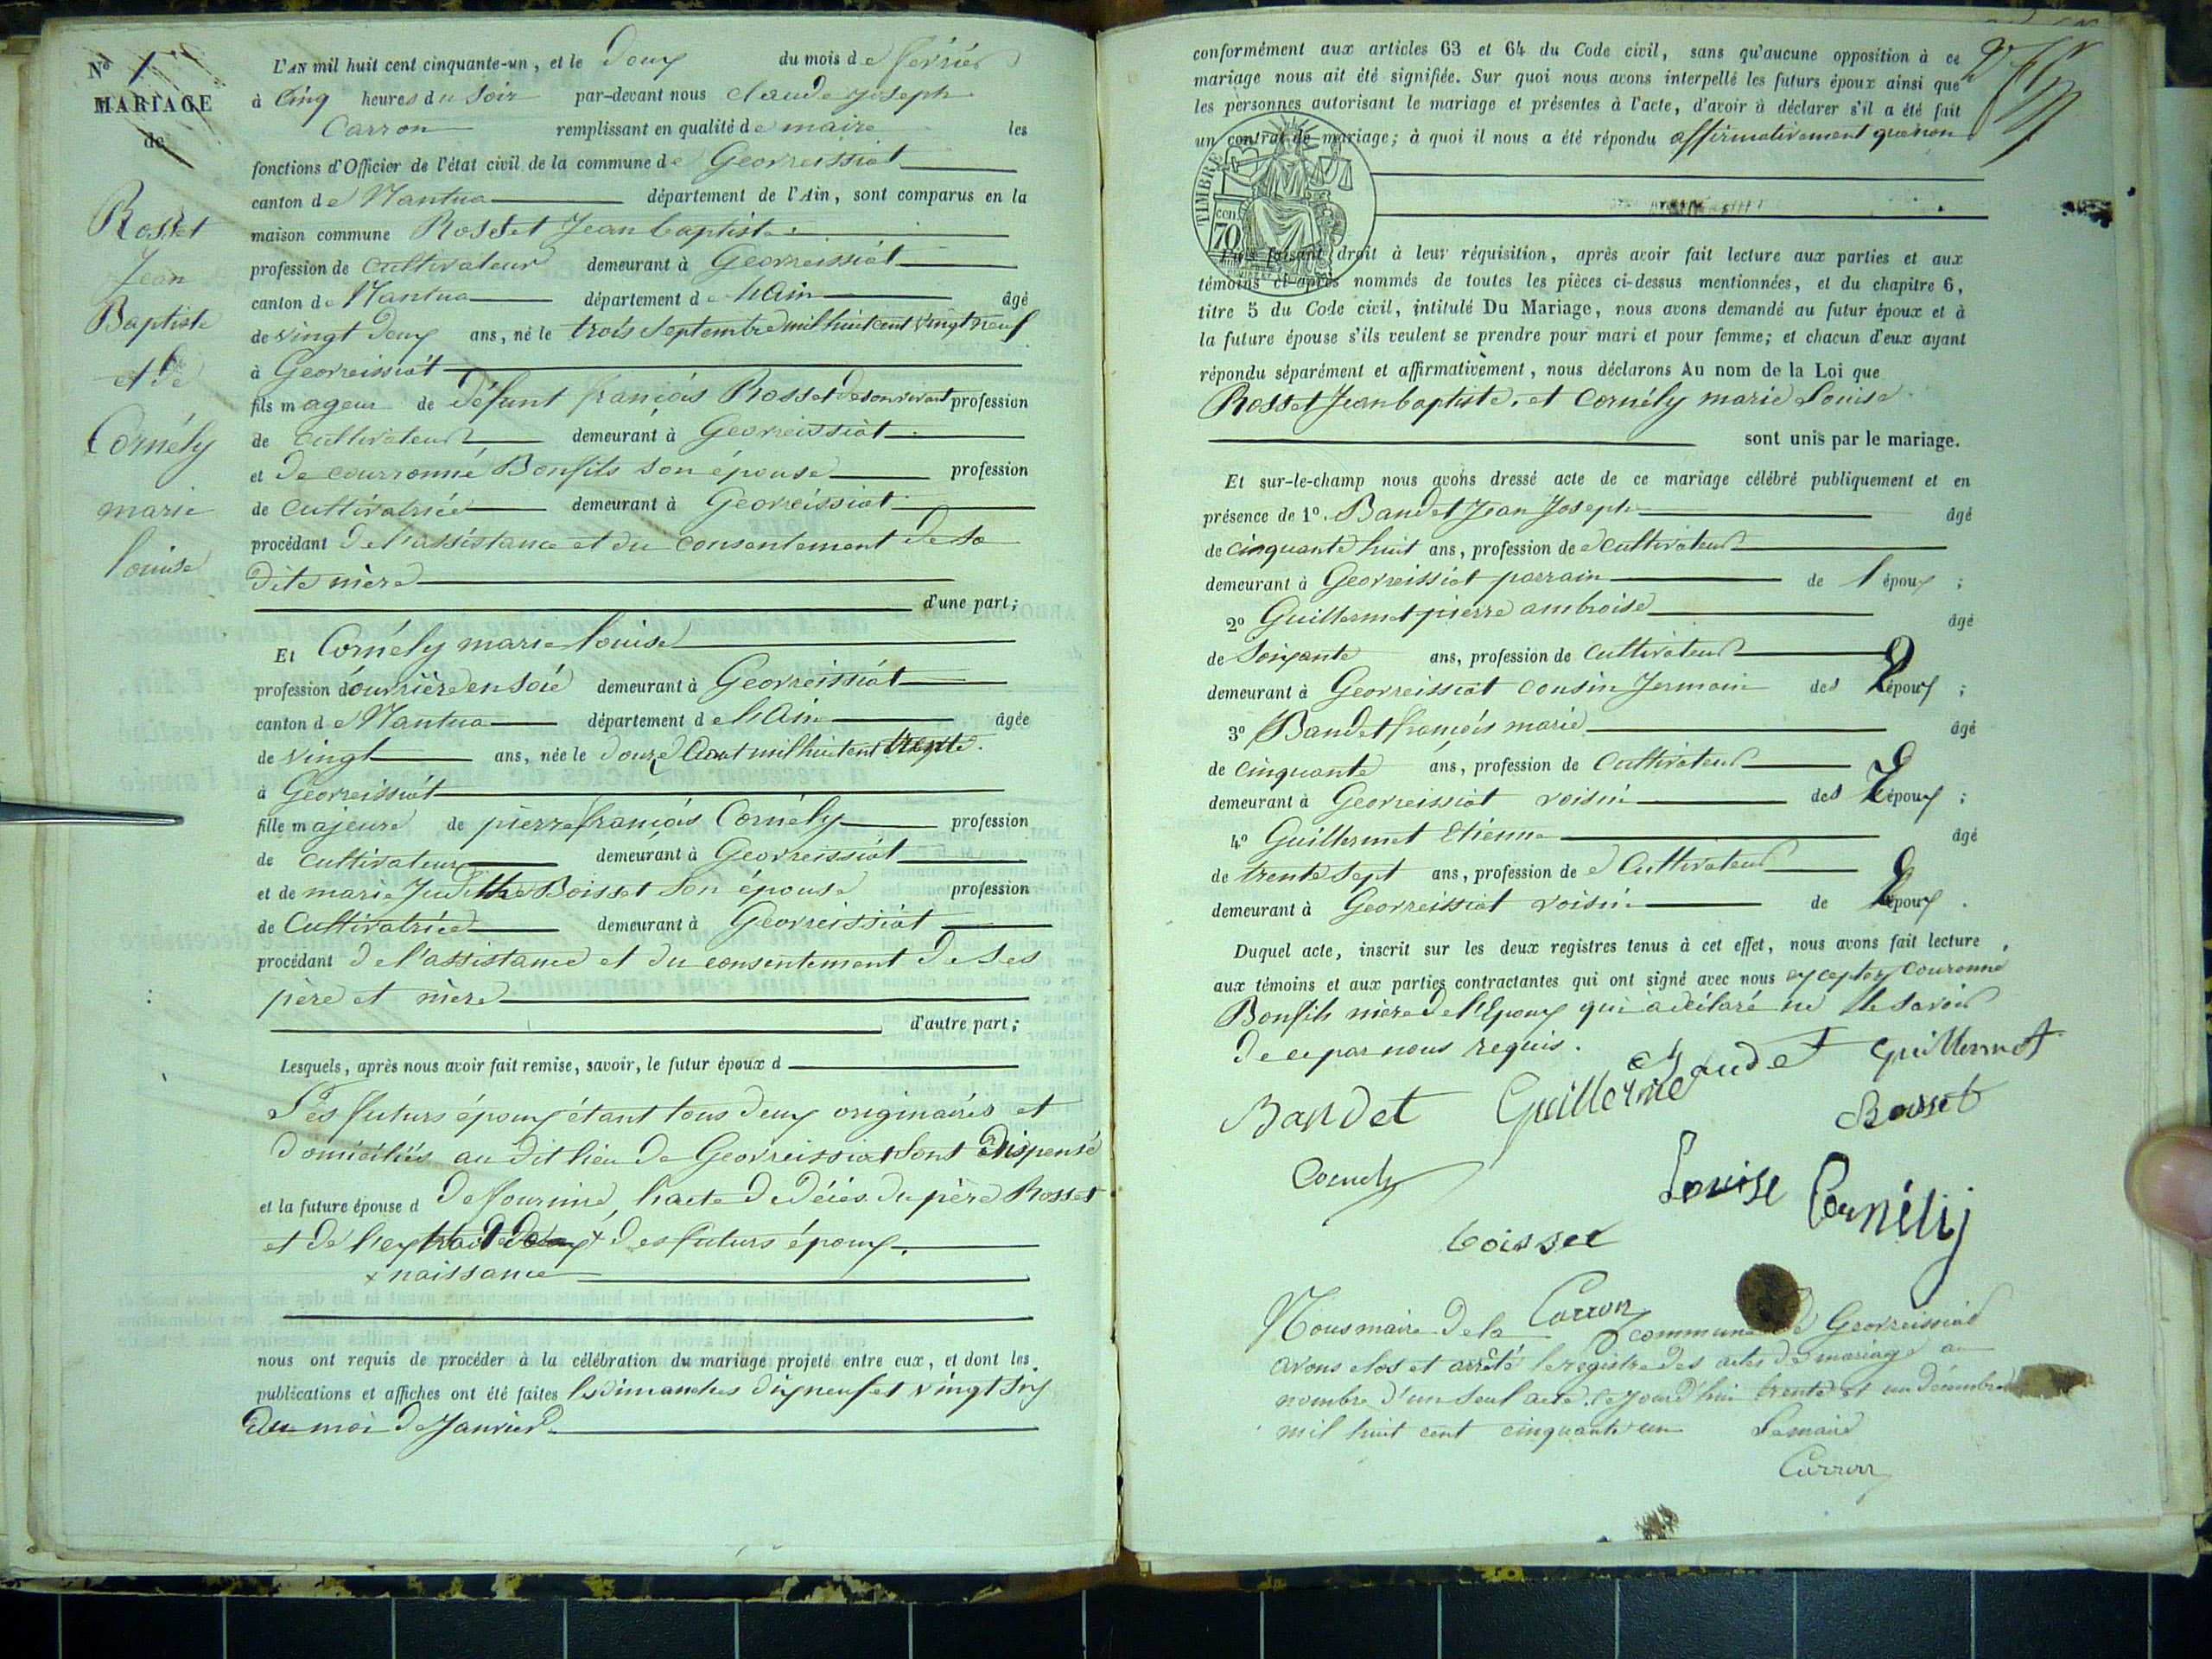 No 1
MARIAGE
de
Rosset
Jean
Baptiste
et de
Cornély
marie
louise
L'AN mil huit cent cinquante-un, et le deux du mois de février
à Cinq heures du Soir par-devant nous claude joseph
Carron remplissant en qualité de maire les
fonctions d'Officier de l'état civil de la commune de Georreissiat
canton de Nantua département de l'Ain, sont comparus en la
maison commune Rosset Jean baptiste
profession de cultivateur demeurant à Georreissiat
canton de Nantua département de l'Ain âgé
de vingt deux ans, né le trois Septembre mil huit cent vingt neuf
à Georreissiat
fils mageur de défunt françois Rosset de son vivant profession
de cultivateur demeurant à Georreissiat
et de courronné Bonfils son épouse profession
de cultivatrice demeurant à Georreissiat
procédant de l'assistance et du consentement de sa
dite mère
d'une part;
Et Cornély marie louise
profession d'ouvrière en soie demeurant à Georreissiat
canton de Nantua département de l'Ain âgée
de vingt ans, née le douze aout mil huit cent trente
à Georreissiat
fille majeure de pierre françois Cornély profession
de cultivateur demeurant à Georreissiat
et de marie Judithe Boisset son épouse profession
de Cultivatrice demeurant à Georreissiat
procédant de l'assistance et du consentement de ses
père et mère
d'autre part;
Lesquels, après nous avoir fait remise, savoir, le futur époux d
Les futurs époux étant tous deux originaires et
domiciliés au dit lieu de Georreissiat sont dispensé
et la future épouse d de fournire, l'acte de décés du père Rosset
et de l'extrait de x des futurs époux.
x naissance
nous ont requis de procéder à la célébration du mariage projeté entre eux, et dont les
publications et affiches ont été faites les dimanches dix neuf et vingt six
du moi de Janvier
conformément aux articles 63 et 64 du Code civil, sans qu'aucune opposition à ce
mariage nous ait été signifiée. Sur quoi nous avons interpellé les futurs époux ainsi que
les personnes autorisant le mariage et présentes à l'acte, d'avoir à déclarer s'il a été fait
un contrat de mariage; à quoi il nous a été répondu affirmativement que non
TIMBRE
70 cen
Puis faisant droit à leur réquisition, après avoir fait lecture aux parties et aux
témoins ci-après nommés de toutes les pièces ci-dessus mentionnées, et du chapitre 6,
titre 5 du Code civil, intitulé Du Mariage, nous avons demandé au futur époux et à
la future épouse s'ils veulent se prendre pour mari et pour femme; et chacun d'eux ayant
répondu séparément et affirmativement, nous déclarons Au nom de la Loi que
Rosset Jean baptiste, et Cornély marie Louise
sont unis par le mariage.
Et sur-le-champ nous avons dressé acte de ce mariage célébré publiquement et en
présence de 1º. Baudet Jean Joseph âgé
de cinquante huit ans, profession de cultivateur
demeurant à Georreissiat parrain de l'époux ;
2º Guillermet pierre ambroise âgé
de Soixante ans, profession de cultivateur
demeurant à Georreissiat cousin Jermain des époux ;
3º Baudet françois marie âgé
de cinquante ans, profession de cultivateur
demeurant à Georreissiat voisin des époux ;
4º Guillermet Etienne âgé
de trente sept ans, profession de cultivateur
demeurant à Georreissiat voisin de époux .
Duquel acte, inscrit sur les deux registres tenus à cet effet, nous avons fait lecture
aux témoins et aux parties contractantes qui ont signé avec nous exceptez Couronné
Bonfils mère de l'Epoux qui a déclaré ne le savoir
de ce par nous requis.
Baudet Guillermet
Bandet Guillerme
Rosset
Cornely
Louise Cornélij
boisset
Carron
Nous maire de la commune de Georreissiat
avons clos et arrêté le registre des actes de mariage au
nombre d'un seul acte. cejourd'hui trente et un décembre
mil huit cent cinquante un Le maire
Carron